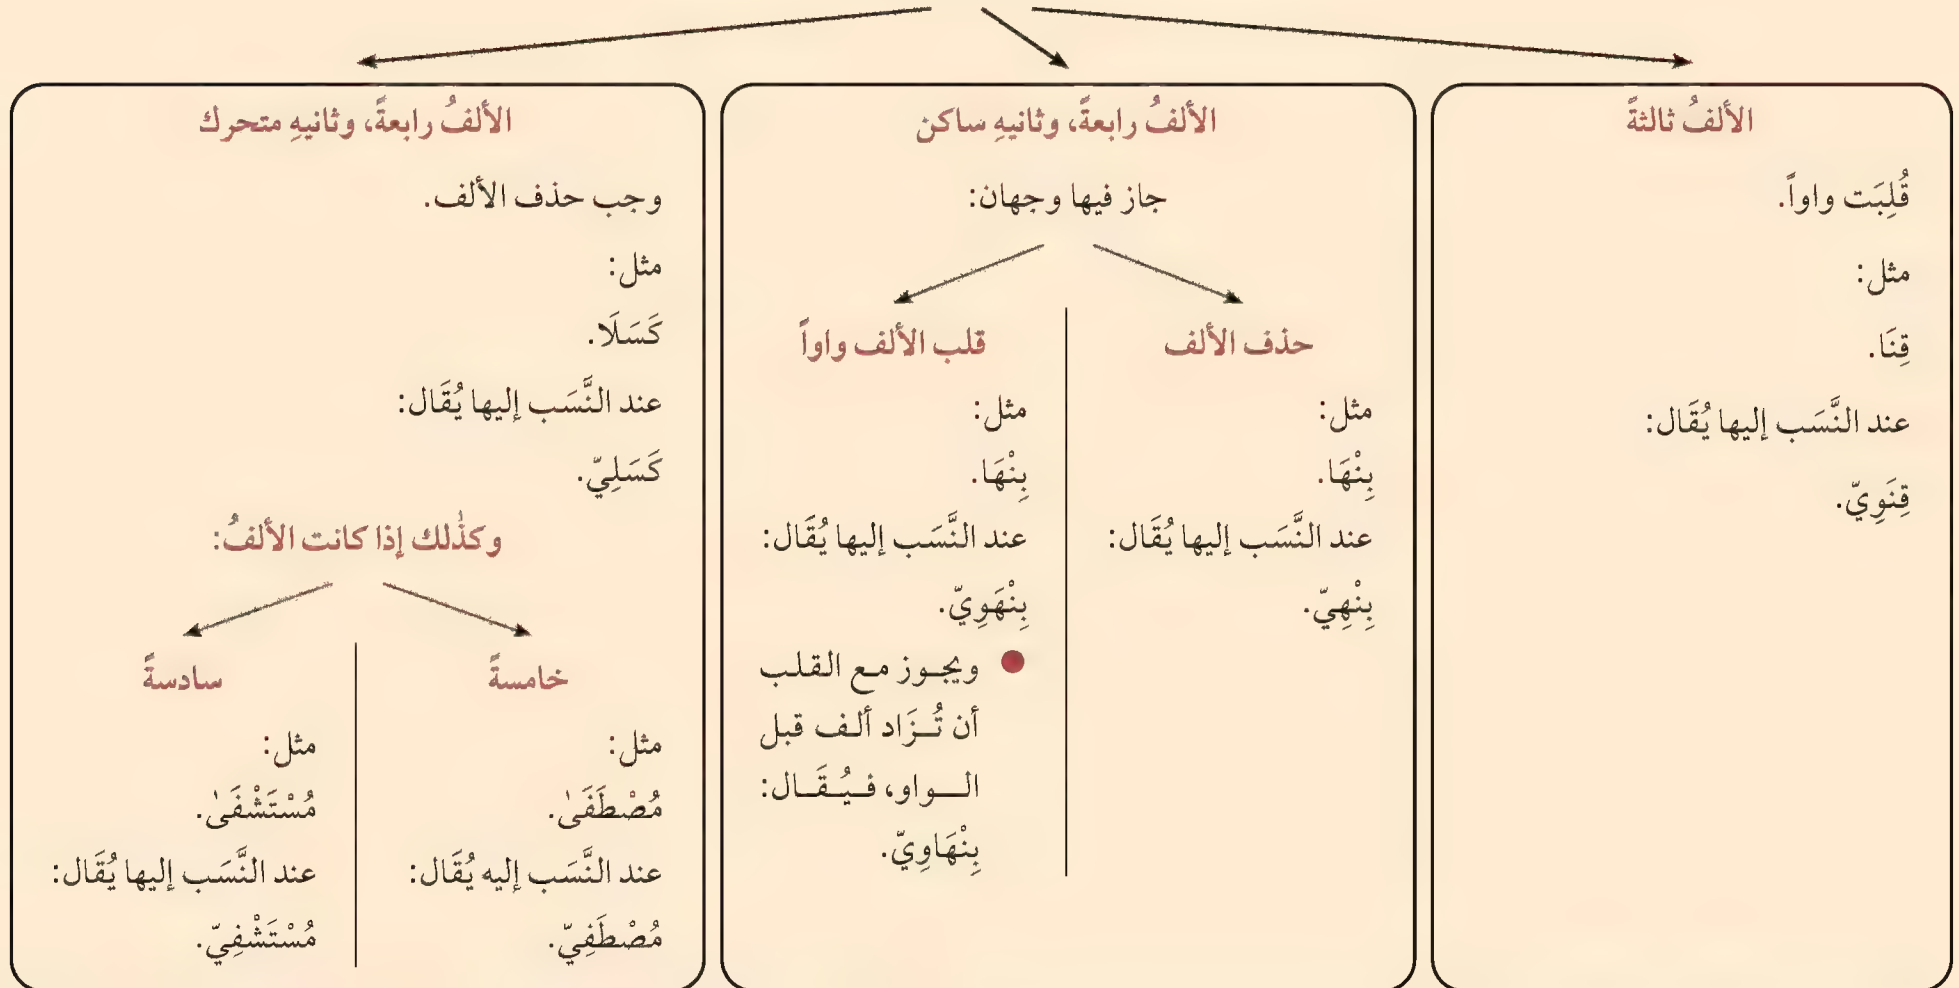 الألفُ ثالثةً
قُلِبَت واواً.
مثل:
قِنَا.
عند النَّسَب إليها يُقَال:
قِنَوِيّ.
الألفُ رابعةً، وثانيهِ ساكن
جاز فيها وجهان:
حذف الألف
مثل:
بِنْهَا.
عند النَّسَب إليها يُقَال:
بِنْهِيّ.
قلب الألف واواً
مثل:
بِنْهَا.
عند النَّسَب إليها يُقَال:
بِنْهَوِيّ.
● ويجوز مع القلب
أن تُزَاد ألف قبل
الواو، فيُقَال:
بِنْهَاوِيّ.
الألفُ رابعةً، وثانيهِ متحرك
وجب حذف الألف.
مثل:
كَسَلَا.
عند النَّسَب إليها يُقَال:
كَسَلِيّ.
وكذٰلك إذا كانت الألفُ:
خامسةً
مثل:
مُصْطَفَىٰ.
عند النَّسَب إليه يُقَال:
مُصْطَفِيّ.
سادسةً
مثل:
مُسْتَشْفَىٰ.
عند النَّسَب إليها يُقَال:
مُسْتَشْفِيّ.